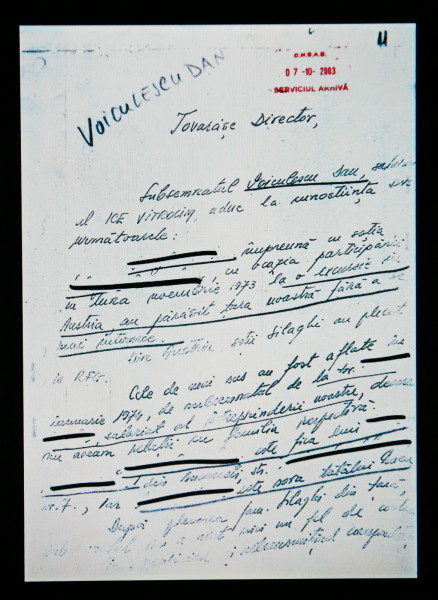 11
VOICULESCU DAN
C.N.S.A.S.
07-10-2003
SERVICIUL ARHIVĂ
Tovarășe Director,
Subsemnatul Voiculescu Dan,
al ICE VITROCIM, aduc la cunoștința
următoarele:
împreună cu soția
cu ocazia participării
în luna noiembrie 1973 la o excursie în
Austria au părăsit țara noastră fără a se
mai întoarce.
Din Austria soții Silaghi au plecat
în RFG.
Cele de mai sus au fost aflate în
ianuarie 1974, de subsemnatul de la tov.
salariat al întreprinderii noastre,
nu aveam relații cu familia respectivă.
este fiica lui
din București, str.
nr. 7, iar
este sora tatălui
După plecarea fam. Silaghi din țară,
subsemnatul nu a avut nici un fel de